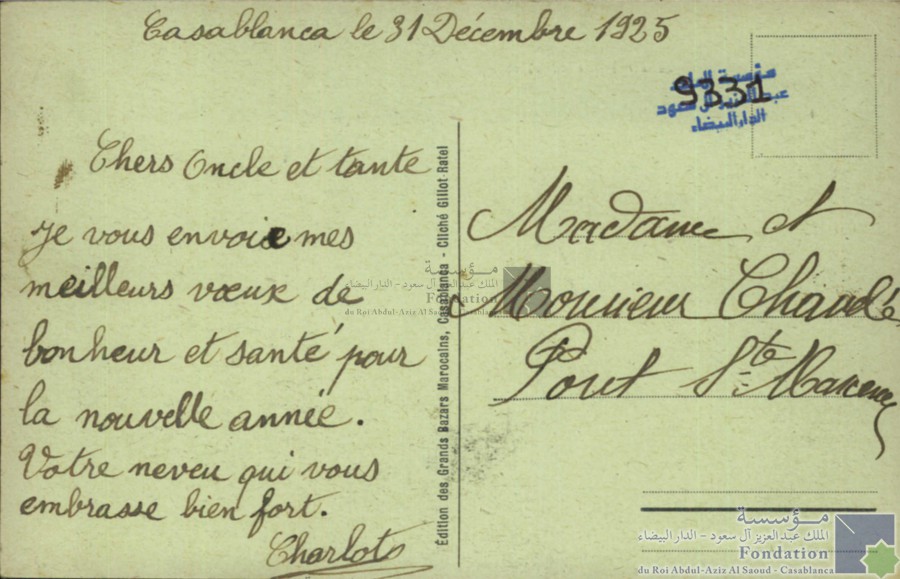 Casablanca le 31 Décembre 1925
Chers Oncle et tante
Je vous envoie mes
meilleurs vœux de
bonheur et santé pour
la nouvelle année.
Votre neveu qui vous
embrasse bien fort.
Charlot
Édition des Grands Bazars Marocains, Casablanca - Cliché Gillot-Ratel
مؤسسة الملك
9331
عبد العزيز آل سعود
الدار البيضاء
Madame et
Monsieur
Pont Ste Maxence
مؤسسة
الملك عبدالعزيز آل سعود - الدار البيضاء
Fondation
du Roi Abdul-Aziz Al Saoud - Casablanca
مؤسسة
الملك عبدالعزيز آل سعود - الدار البيضاء
Fondation
du Roi Abdul-Aziz Al Saoud - Casablanca